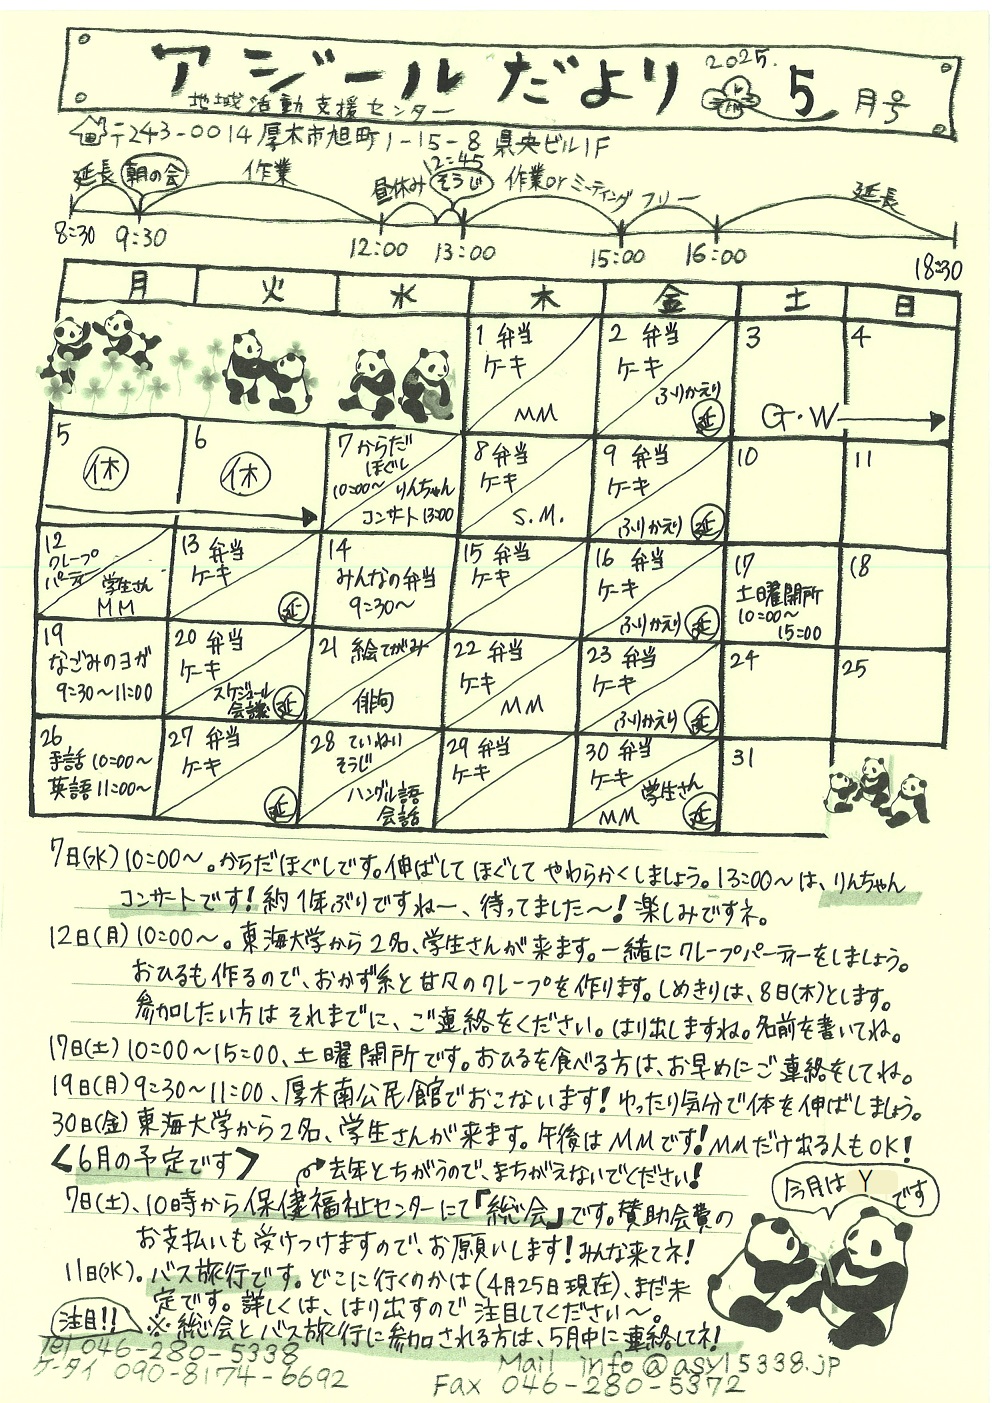 アジールだより 2025. 5月号
地域活動支援センター
〒243-0014 厚木市旭町1-15-8 県央ビル1F
延長 朝の会 作業 昼休み 12:45 そうじ 作業orミーティング フリー 延長
8:30 9:30 12:00 13:00 15:00 16:00 18:30
月 火 水 木 金 土 日
1 弁当 ケーキ MM
2 弁当 ケーキ ふりかえり 延
3 4
G・W
5 休
6 休
7 からだほぐし 10:00~ りんちゃんコンサート 13:00
8 弁当 ケーキ S.M.
9 弁当 ケーキ ふりかえり 延
10
11
12 クレープパーティ 学生さん MM
13 弁当 ケーキ 延
14 みんなの弁当 9:30~
15 弁当 ケーキ
16 弁当 ケーキ ふりかえり 延
17 土曜開所 10:00~15:00
18
19 なごみのヨガ 9:30~11:00
20 弁当 ケーキ スケジュール会議 延
21 絵てがみ 俳句
22 弁当 ケーキ MM
23 弁当 ケーキ ふりかえり 延
24
25
26 手話 10:00~ 英語 11:00~
27 弁当 ケーキ 延
28 ていねいそうじ ハングル語会話
29 弁当 ケーキ
30 弁当 ケーキ 学生さん MM 延
31
7日(水)10:00~。からだほぐしです。伸ばしてほぐしてやわらかくしましょう。13:00~は、りんちゃん
コンサートです!約1年ぶりですねー、待ってました~!楽しみですネ。
12日(月)10:00~。東海大学から2名、学生さんが来ます。一緒にクレープパーティーをしましょう。
おひるも作るので、おかず系と甘々のクレープを作ります。しめきりは、8日(木)とします。
参加したい方はそれまでに、ご連絡をください。はり出しますね。名前を書いてね。
17日(土)10:00~15:00、土曜開所です。おひるを食べる方は、お早めにご連絡をしてね。
19日(月)9:30~11:00、厚木南公民館でおこないます!ゆったり気分で体を伸ばしましょう。
30日(金)東海大学から2名、学生さんが来ます。午後はMMです!MMだけ出る人もOK!
<6月の予定です>
去年とちがうので、まちがえないでください!
7日(土)、10時から保健福祉センターにて『総会』です。賛助会費の
お支払いも受けつけますので、お願いします!みんな来てネ!
11日(水)。バス旅行です。どこに行くのかは(4月25日現在)、まだ未
定です。詳しくは、はり出すので注目してください~。
注目!! ※総会とバス旅行に参加される方は、5月中に連絡してネ!
今月は Y です
Tel 046-280-5338
ケータイ 090-8174-6692
Mail info@asyl5338.jp
Fax 046-280-5372